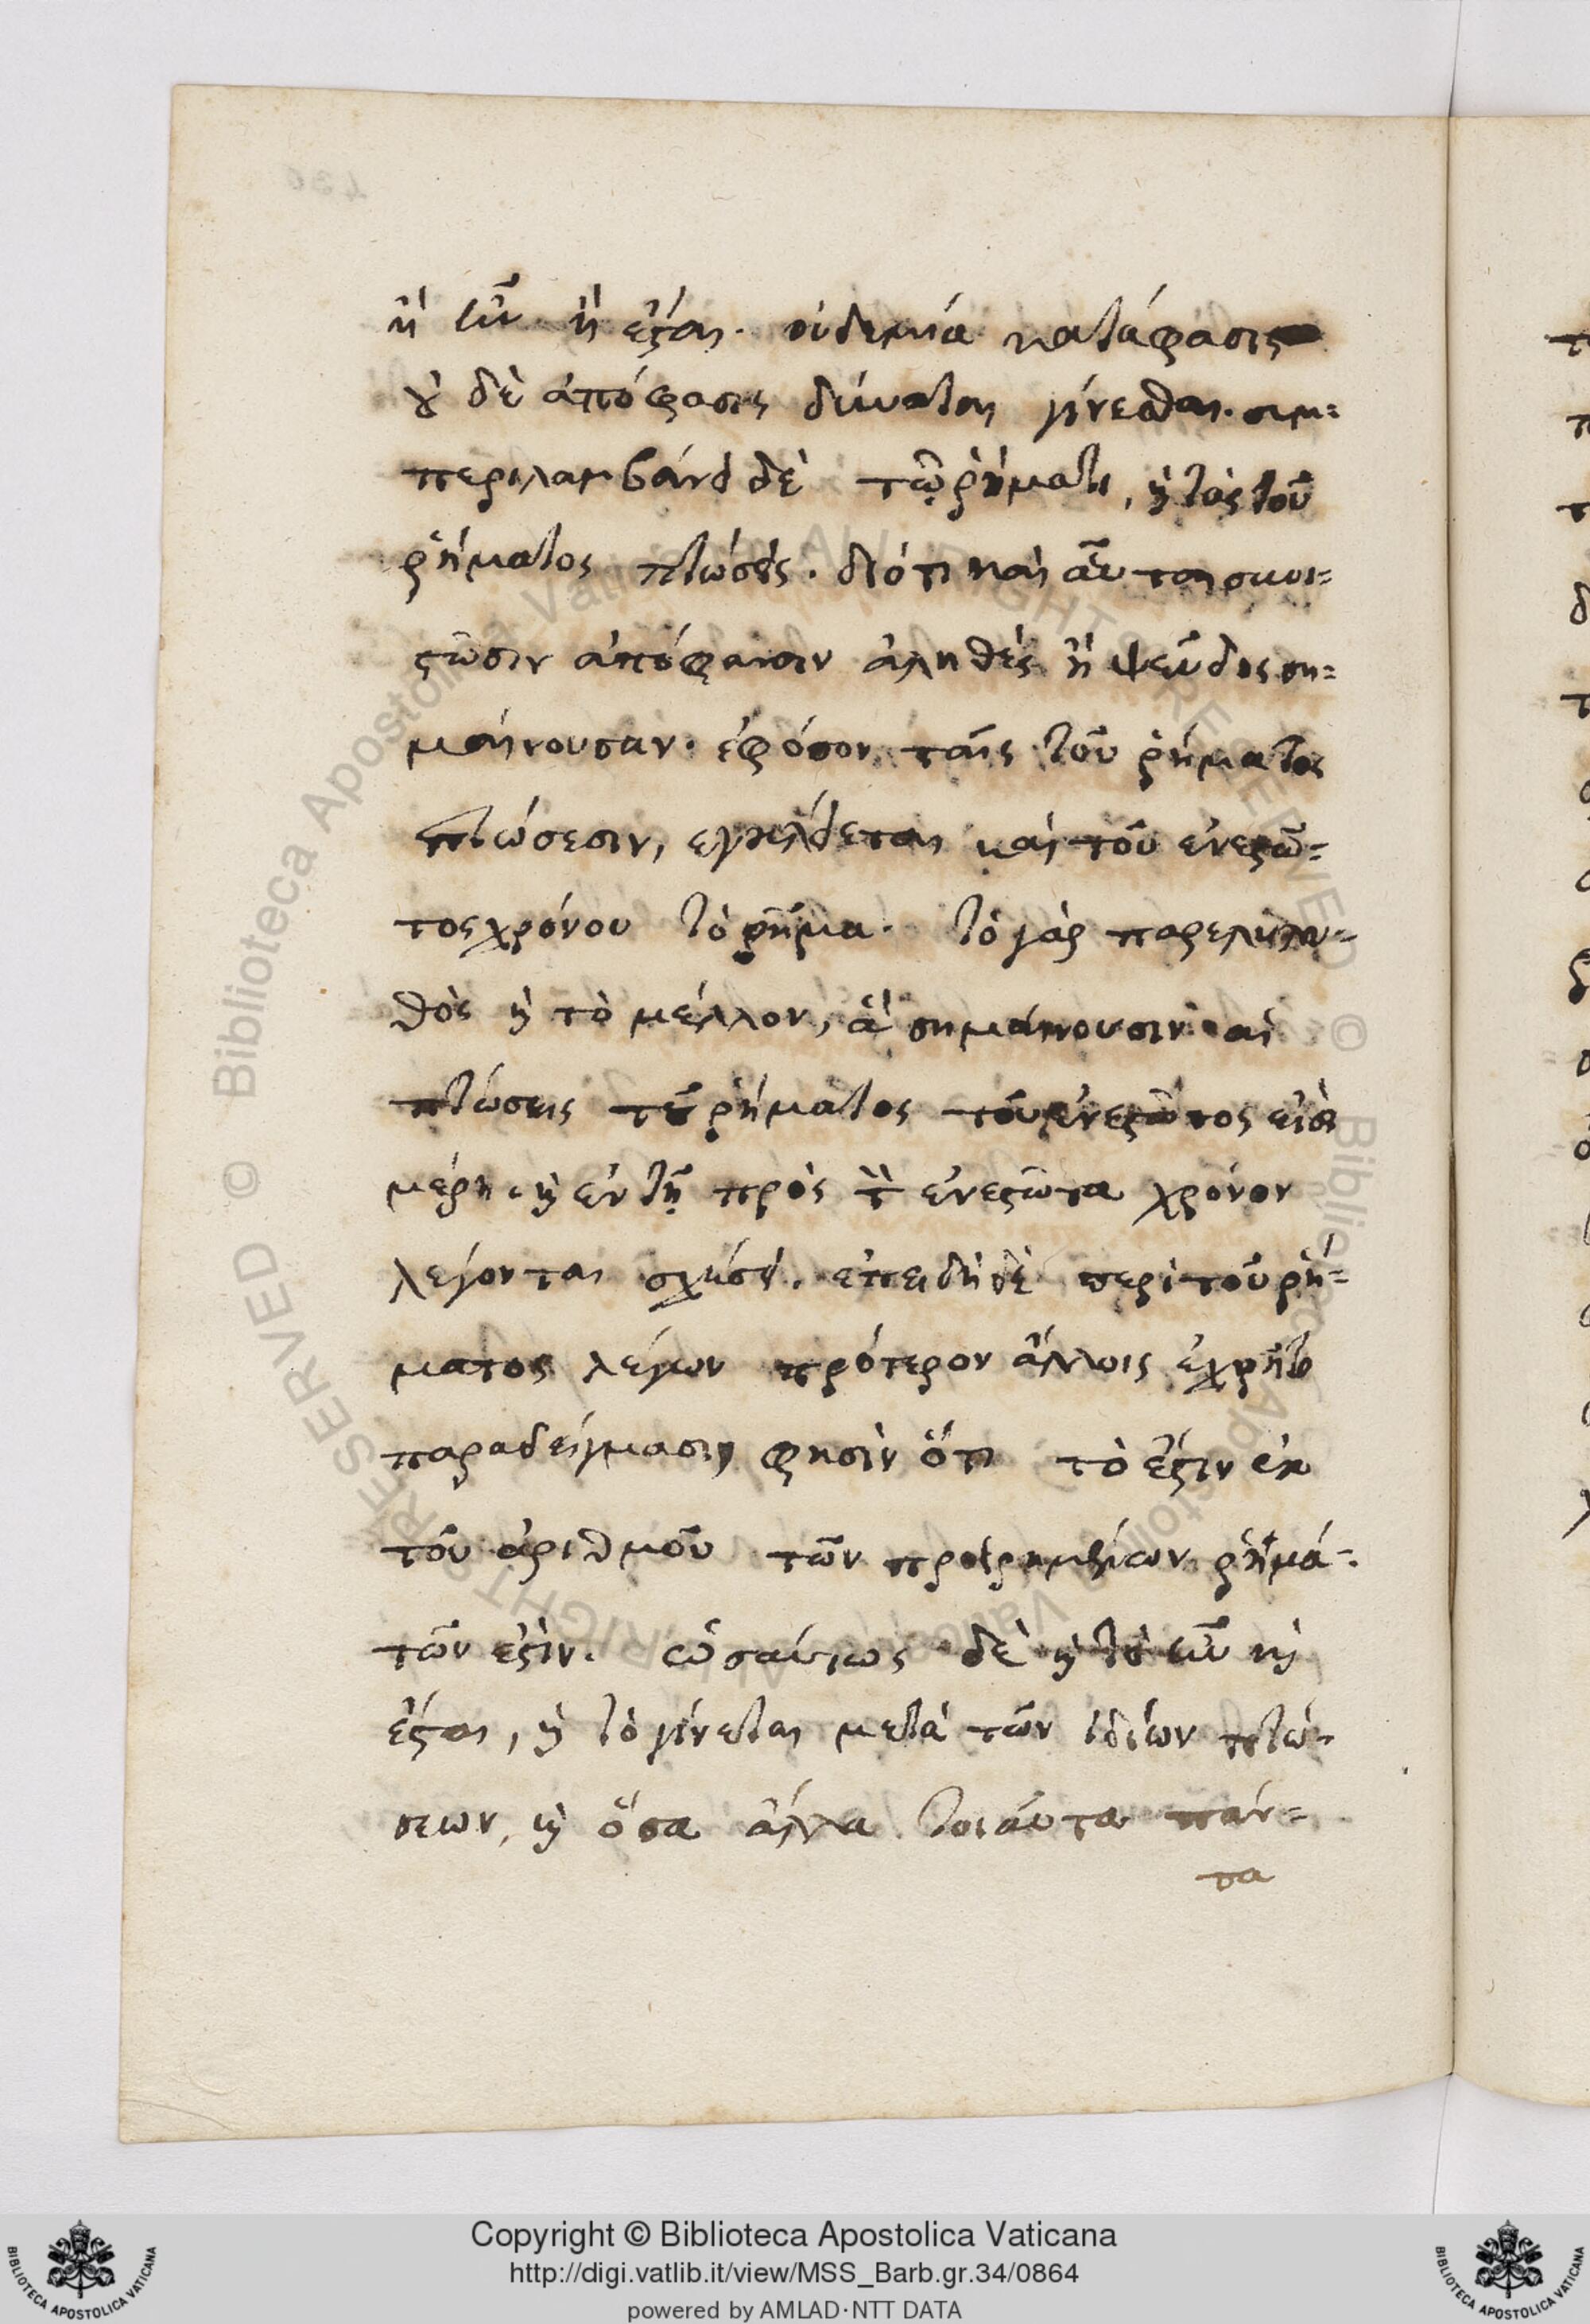 ἢ ἦν ἢ ἔσται. οὐδεμία κατάφασις
οὐδὲ ἀπόφασις δύναται γίνεσθαι. συμ=
περιλαμβάνει δὲ τῷ ῥήματι, καὶ τὰς τοῦ
ῥήματος πτώσεις. διότι καὶ αὗται συνι=
στῶσιν ἀπόφανσιν ἀληθὲς ἢ ψεῦδος ση=
μαίνουσαν. ἐφόσον ταῖς τοῦ ῥήματος
πτώσεσιν, ἐγκλείεται καὶ τοῦ ἐνεστῶ=
τος χρόνου τὸ ῥῆμα. τὸ γὰρ παρεληλυ=
θὸς καὶ τὸ μέλλον, ἃ σημαίνουσιν αἱ
πτώσεις τοῦ ῥήματος τοῦ ἐνεστῶτος εἰσὶ
μέρη. καὶ ἐν τῇ πρὸς τὸν ἐνεστῶτα χρόνον
λέγονται σχέσει. ἐπειδὴ δὲ περὶ τοῦ ῥή=
ματος λέγων πρότερον ἄλλοις ἐχρῆτο
παραδείγμασιν φησὶν ὅτι τὸ ἔστιν ἐκ
τοῦ ἀριθμοῦ τῶν προειρημένων ῥημά=
των ἐστὶν. ὡσαύτως δὲ καὶ τὸ ἦν καὶ
ἔσται, καὶ τὸ γίνεται μετὰ τῶν ἰδίων πτώ=
σεων, καὶ ὅσα ἄλλα τοιαῦτα πάν=
τα
Copyright © Biblioteca Apostolica Vaticana
http://digi.vatlib.it/view/MSS_Barb.gr.34/0864
powered by AMLAD·NTT DATA